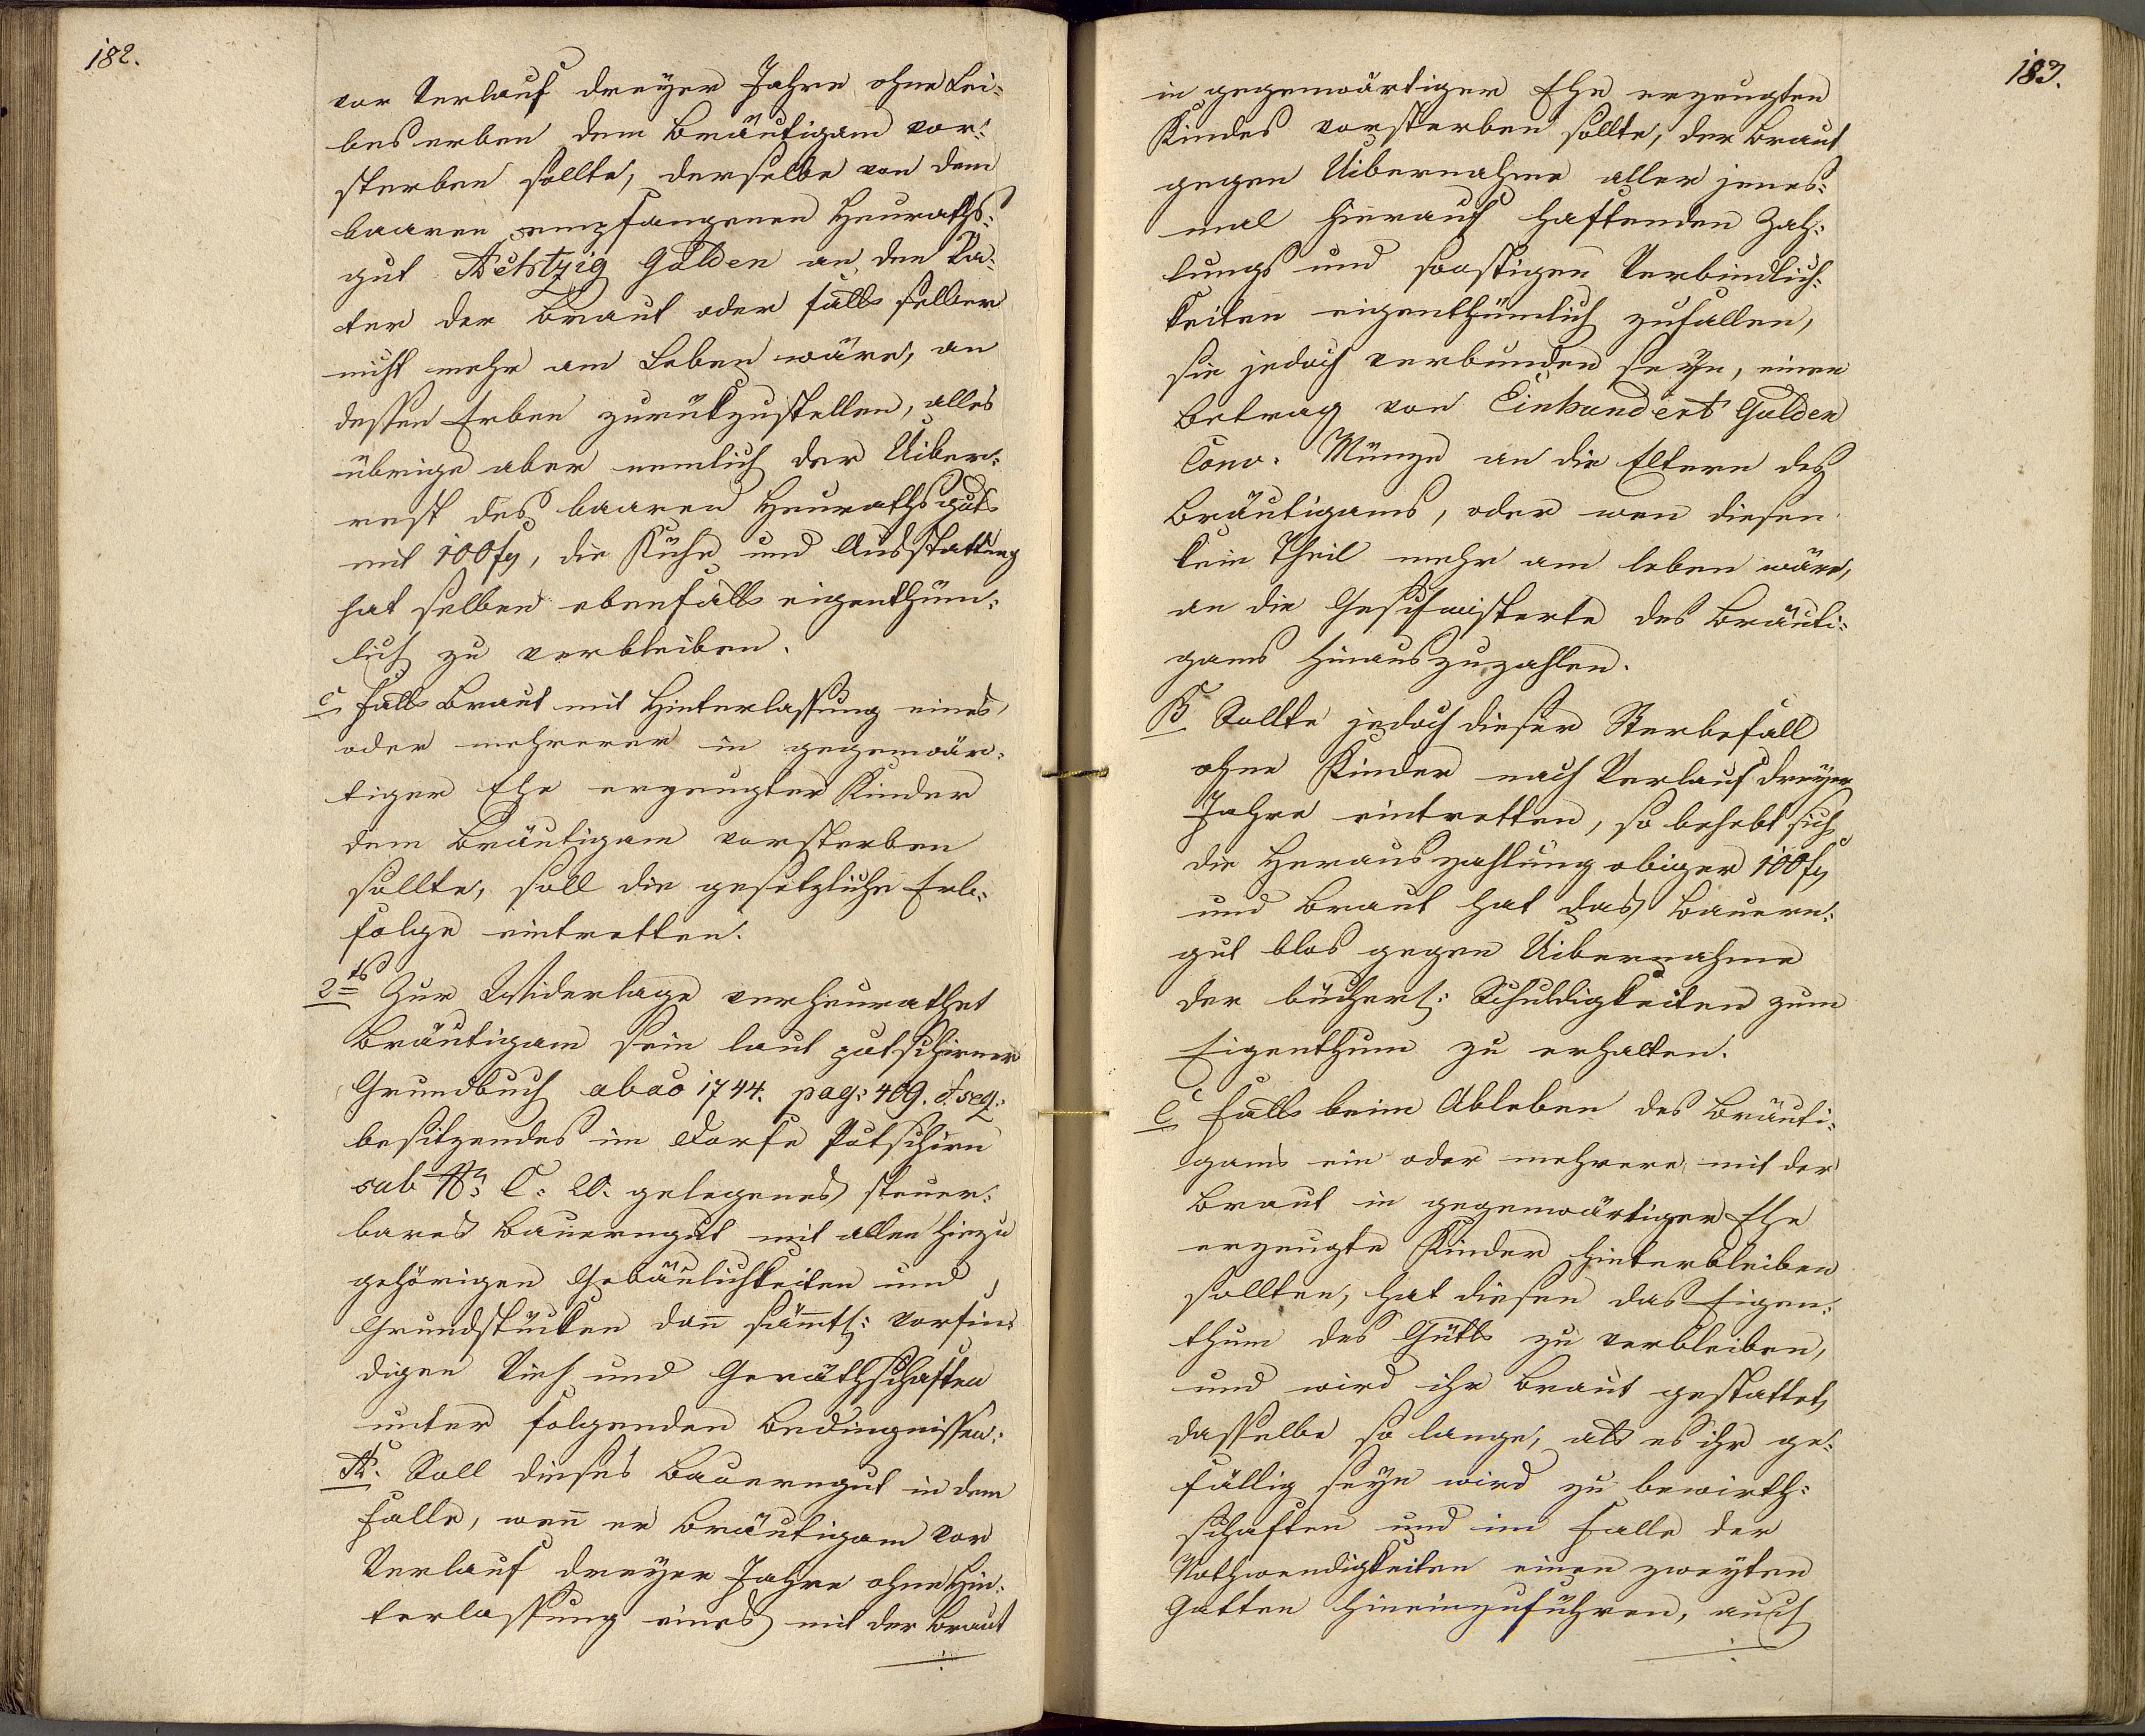 182.
vor Verlauf dreyer Jahre ohne Lei-
bes erben dem Bräutigam vor-
sterben sollte, derselbe von dem
baaren empfangenen Heuraths-
gut Achtzig Gulden an den Va-
ter der Braut oder falls selber
nicht mehr am Leben wäre, an
dessen Erben zurückzustellen, alles
übrige aber nemlich der Uiber-
rest des baaren Heurathsguts
mit 100 f, die Kühe und Ausstattung
hat selben ebenfalls eigenthüm-
lich zu verbleiben.
C Falls Braut mit Hinterlassung eines
oder mehrerer in gegenwär-
tiger Ehe erzeugter Kinder
dem Bräutigam vorsterben
sollte, soll die gesetzliche Erb-
folge eintretten.
2tens Zur Widerlage verheurathet
Bräutigam sein laut putschirner
Grundbuch ab ao 1744. pag: 409. & seq:
besitzendes im Dorfe Putschirn
sub Nr: C: 20. gelegenes steuer-
bares Bauerngut mit allen hiezu
gehörigen Gebäulichkeiten und
Grundstücken dann sämtl: vorfin-
digen Vieh und Geräthschaften
unter folgenden Bedingnissen:
A. Soll dieses Bauerngut in dem
Falle, wenn er Bräutigam vor
Verlauf dreyer Jahre ohne Hin-
terlassung eines mit der Braut
183.
in gegenwärtiger Ehe erzeugten
Kindes vorsterben sollte, der Braut
gegen Uibernahme aller jenes-
mal hierauf haftenden Zah-
lungs und sonstigen Verbindlich-
keiten eigenthümlich zufallen,
sie jedoch verbunden seyn, einen
Betrag von Einhundert Gulden
Conv. Münze an die Eltern des
Bräutigams, oder wen diesen
kein Theil mehr am leben wäre,
an die Geschwisterte des Bräuti-
gams hinauszuzahlen.
B Sollte jedoch dieser Sterbefall
ohne Kinder nach Verlauf dreyer
Jahre eintretten, so behebt sich
die Herauszahlung obiger 100 f
und Braut hat das Bauern-
gut blos gegen Uibernahme
der bücherl: Schuldigkeiten zum
Eigenthum zu erhalten.
C Falls beim Ableben des Bräuti-
gams ein oder mehrere mit der
Braut in gegenwärtiger Ehe
erzeugte Kinder hinterbleiben
sollten, hat diesen das Eigen-
thum des Gütls zu verbleiben,
und wird ihr Braut gestattet,
dasselbe so lange, als es ihr ge-
fällig seyn wird zu bewirth-
schaften und im Falle der
Nothwendigkeiten einen zweyten
Gatten hineinzuführen, auch